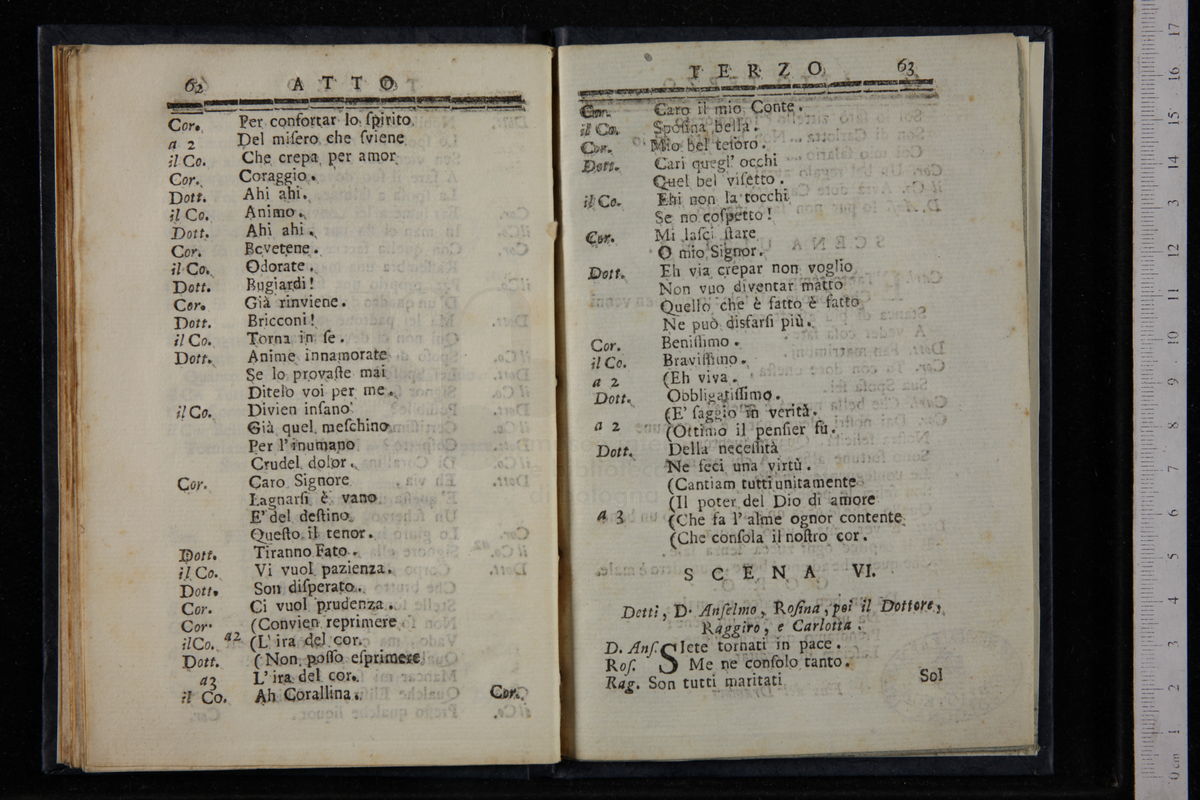 62 ATTO
Cor. Per confortar lo ſpirito
a 2 Del miſero che ſviene
il Co. Che crepa per amor
Cor. Coraggio.
Dott. Ahi ahi.
il Co. Animo.
Dott. Ahi ahi.
Cor. Bevetene.
il Co. Odorate.
Dott. Bugiardi!
Cor. Già rinviene.
Dott. Bricconi!
il Co. Torna in ſe.
Dott. Anime innamorate
Se lo provaſte mai
Ditelo voi per me.
il Co. Divien inſano
Già quel meſchino
Per l'inumano
Crudel dolor.
Cor. Caro Signore
Lagnarſi è vano
E' del deſtino
Queſto il tenor.
Dott. Tiranno Fato.
il Co. Vi vuol pazienza.
Dott. Son diſperato.
Cor. Ci vuol prudenza.
Cor. (Convien reprimere
il Co. a2 (L'ira del cor.
Dott. (Non poſſo eſprimere
a3 L'ira del cor.
il Co. Ah Corallina.
Cor.
TERZO 63
Cor. Caro il mio Conte.
il Co. Spoſina bella.
Cor. Mio bel teſoro.
Dott. Cari quegl' occhi
Quel bel viſetto.
il Co. Ehi non la tocchi
Se no coſpetto!
Cor. Mi laſci ſtare
O mio Signor.
Dott. Eh via crepar non voglio
Non vuo diventar matto
Quello che è fatto è fatto
Ne può disfarſi più.
Cor. Beniſſimo.
il Co. Braviſſimo.
a 2 (Eh viva.
Dott. Obbligatiſſimo.
(E' ſaggio in verità.
a 2 (Ottimo il penſier fù.
Dott. Della neceſſità
Ne feci una virtù.
(Cantiam tutti unitamente
(Il poter del Dio di amore
a 3 (Che fa l'alme ognor contente
(Che conſola il noſtro cor.
SCENA VI.
Detti, D. Anſelmo, Roſina, poi il Dottore,
Raggiro, e Carlotta.
D. Anſ. SIete tornati in pace.
Roſ. Me ne conſolo tanto.
Rag. Son tutti maritati
Sol